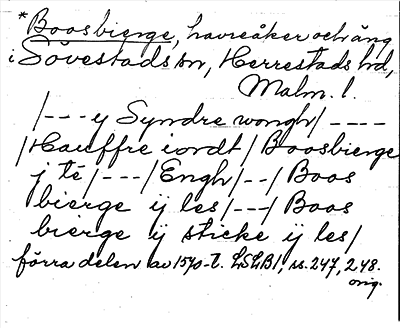 *Boosbierge, havreåker och äng
i Sövestads sn, Herrestads hd,
Malm. l.
/---y Syndre wongh/----
/Hauffre iordt/Boosbierge
j té/---/Engh/--/Boos
bierge ij les/---/Boos
bierge ij sticke ij les/
förra delen av 1570-t. LSLB1, ss. 247, 248.
orig.